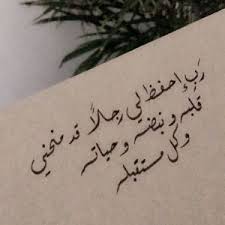 رَبِّ إحفظ لي رجلاً قد منحني
قلبه و نبضه و حياته
و كل مستقبله